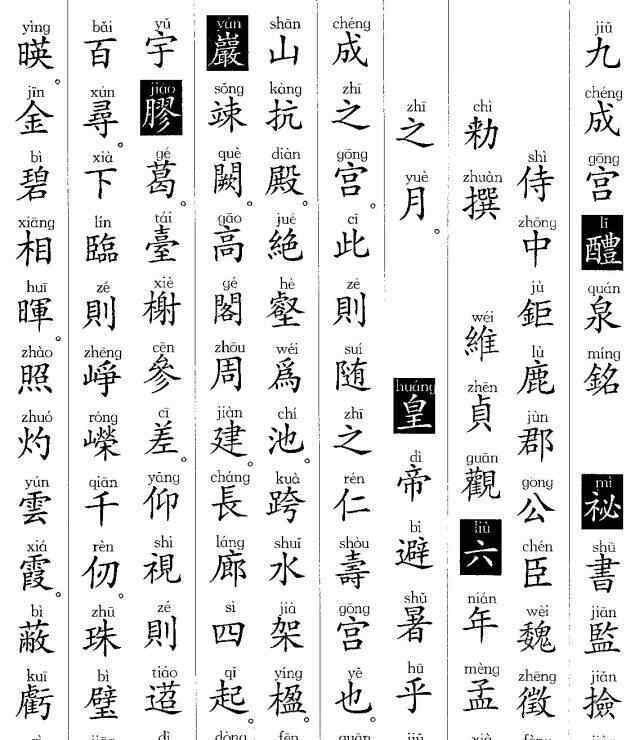 jiǔ chéng gōng lǐ quán míng mì shū jiān jiǎn
九成宮醴泉銘 祕書監撿
shì zhōng jù lù jùn gōng chén wèi zhēng
侍中鉅鹿郡公臣魏徵
chì zhuàn wéi zhēn guān liù nián mèng
勑撰 維貞觀六年孟
zhī yuè huáng dì bì shǔ hū
之月。 皇帝避暑乎
chéng zhī gōng cǐ zé suí zhī rén shòu gōng yě
成之宮。此則随之仁壽宮也。
shān kàng diàn jué hè wéi chí kuà shuǐ jià yíng
山抗殿。絶壑爲池。跨水架楹。
yán sǒng què gāo gé zhōu jiàn cháng láng sì qǐ
巖竦闕。高閣周建。長廊四起。
yǔ jiāo gé tái xiè cēn cī yǎng shì zé tiáo
宇膠葛。臺榭參差。仰視則迢
bǎi xún xià lín zé zhēng róng qiān rèn zhū bì
百尋。下臨則崢嶸千仞。珠璧
yìng jīn bì xiāng huī zhào zhuó yún xiá bì kuī
暎。金碧相暉。照灼雲霞。蔽虧